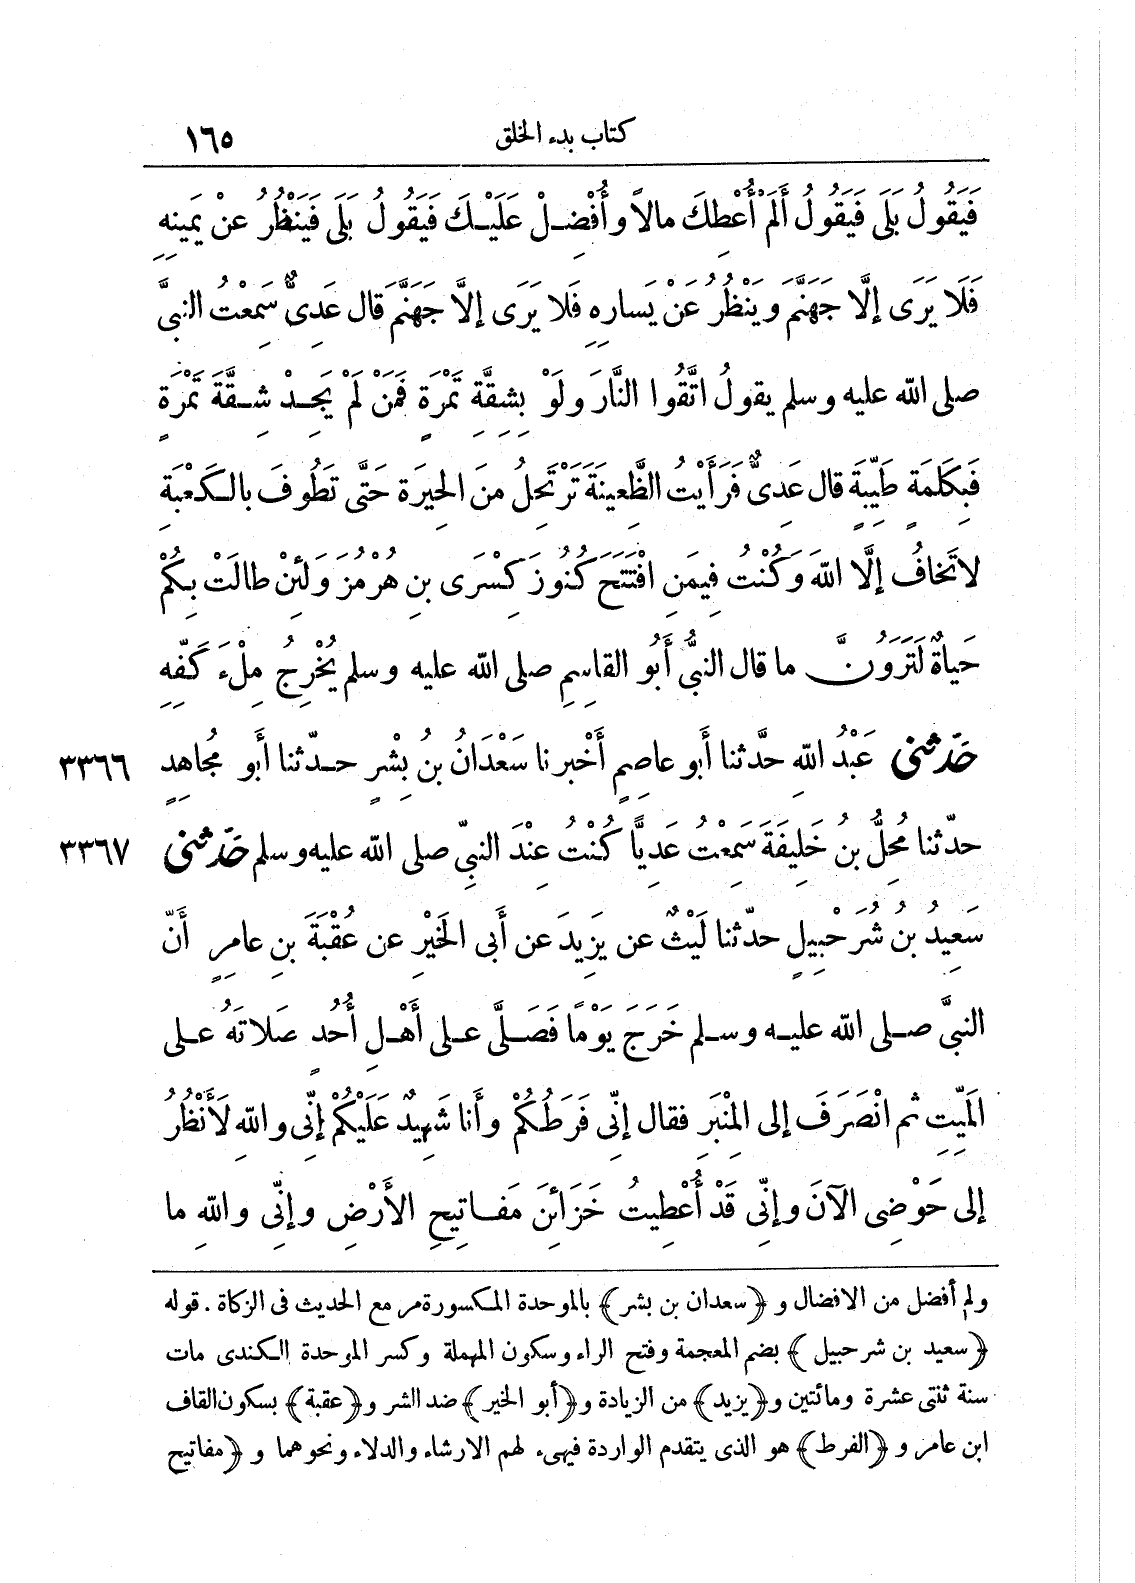 كتاب بدء الخلق ١٦٥
فَيَقُولُ بَلَى فَيَقُولُ أَلَمْ أُعْطِكَ مالاً وأُفْضِلْ عَلَيْكَ فَيَقُولُ بَلَى فَيَنْظُرُ عنْ يَمِينِهِ
فَلَا يَرَى إلَّا جَهَنَّمَ ويَنْظُرُ عَنْ يَسارِهِ فَلا يَرَى إلَّا جَهَنَّمَ قال عَدِىٌّ سَمِعْتُ النبىَّ
صلى الله عليه وسلم يقولُ اتَّقُوا النَّارَ ولَوْ بِشِقَّةِ تَمْرَةٍ فَمَنْ لَمْ يَجِدْ شِقَّةَ تَمْرَةٍ
فَبِكَلِمَةٍ طَيِّبَةٍ قال عَدِىٌّ فَرَأَيْتُ الظَّعِينَةَ تَرْتَحِلُ مِنَ الحِيرَةِ حَتَّى تَطُوفَ بالكَعْبَةِ
لا تَخافُ إلَّا اللهَ وَكُنْتُ فِيمَنِ افْتَتَحَ كُنُوزَ كِسْرَى بنِ هُرْمُزَ وَلَئِنْ طالَتْ بِكُمْ
حَياةٌ لَتَرَوُنَّ ما قال النبىُّ أَبُو القاسِمِ صلى الله عليه وسلم يُخْرِجُ مِلْءَ كَفِّهِ
حَدّثنى عَبْدُ اللهِ حدَّثنا أَبو عاصِمٍ أَخْبرنا سَعْدَانُ بنُ بِشْرٍ حدّثنا أَبو مُجاهِدٍ ٣٣٦٦
حدّثنا مُحِلُّ بنُ خَلِيفَةَ سَمِعْتُ عَدِيًّا كُنْتُ عِنْدَ النبىِّ صلى الله عليه وسلم حَدّثنى ٣٣٦٧
سَعِيدُ بنُ شُرَحْبِيلٍ حدّثنا لَيْثٌ عن يَزِيدَ عن أَبى الخَيْرِ عن عُقْبَةَ بنِ عامِرٍ أَنّ
النبىَّ صلى الله عليه وسلم خَرَجَ يَوْمًا فَصَلَّى على أَهْلِ أُحُدٍ صَلاتَهُ على
المَيِّتِ ثم انْصَرَفَ إلى المِنْبَرِ فقال إنِّى فَرَطُكُمْ وأَنا شَهِيدٌ عَلَيْكُمْ إنِّى واللهِ لَأَنْظُرُ
إلى حَوْضِى الآنَ وإنِّى قَدْ أُعْطِيتُ خَزَائِنَ مَفاتِيحِ الأَرْضِ وإنِّى واللهِ ما
ولم أفضل من الافضال و ﴿سعدان بن بشر﴾ بالموحدة المكسورة مر مع الحديث فى الزكاة . قوله
﴿سعيد بن شرحبيل﴾ بضم المعجمة وفتح الراء وسكون المهملة وكسر الموحدة الكندى مات
سنة ثنتى عشرة ومائتين و﴿يزيد﴾ من الزيادة و﴿أبو الخير﴾ ضد الشر و﴿عقبة﴾ بسكون القاف
ابن عامر و ﴿الفرط﴾ هو الذى يتقدم الواردة فيهىء لهم الارشاء والدلاء ونحوهما و ﴿مفاتيح